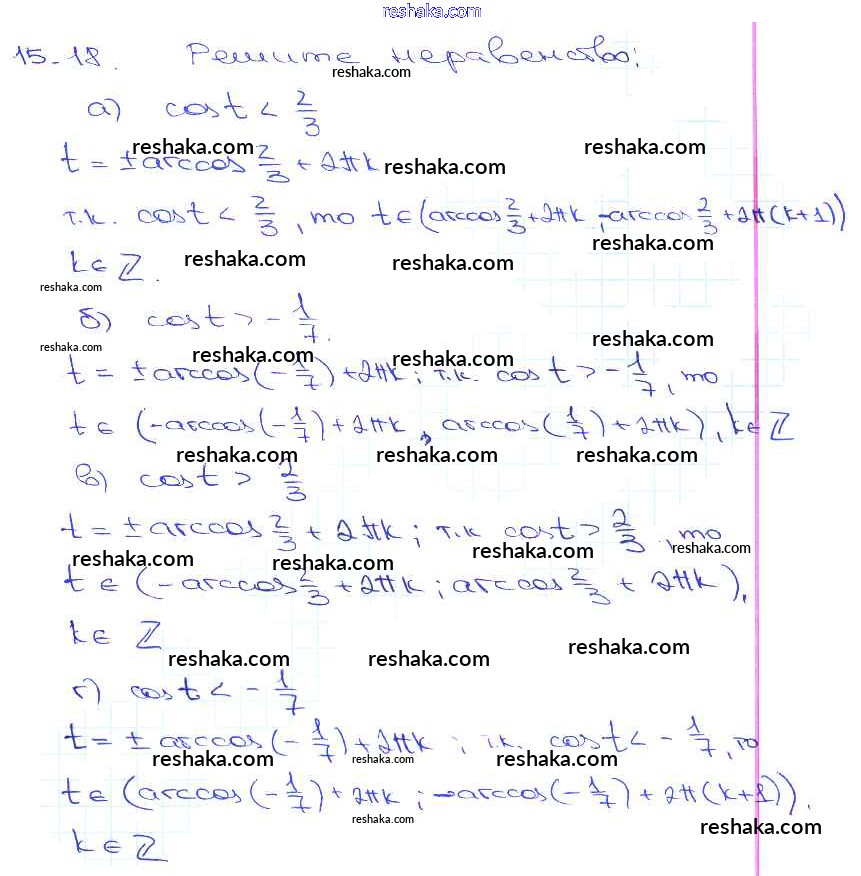 reshaka.com
15-18. Решите неравенство:
reshaka.com
а) cos t < 2/3
reshaka.com reshaka.com
t = ± arccos 2/3 + 2πk
reshaka.com
т.к. cos t < 2/3, то t ∈ (arccos 2/3 + 2πk; -arccos 2/3 + 2π(k+1))
reshaka.com reshaka.com reshaka.com
k ∈ ℤ.
reshaka.com
б) cos t > -1/7.
reshaka.com
reshaka.com reshaka.com reshaka.com
t = ± arccos(-1/7) + 2πk; т.к. cos t > -1/7, то
reshaka.com
t ∈ (-arccos(-1/7) + 2πk, arccos(1/7) + 2πk), k ∈ ℤ
reshaka.com reshaka.com reshaka.com
в) cos t > 2/3
t = ± arccos 2/3 + 2πk; т.к cos t > 2/3, то
reshaka.com reshaka.com reshaka.com reshaka.com
t ∈ (-arccos 2/3 + 2πk; arccos 2/3 + 2πk),
k ∈ ℤ
reshaka.com reshaka.com reshaka.com
г) cos t < -1/7
t = ± arccos(-1/7) + 2πk; т.к. cos t < -1/7, то
reshaka.com reshaka.com reshaka.com
t ∈ (arccos(-1/7) + 2πk; -arccos(-1/7) + 2π(k+1)),
reshaka.com reshaka.com
k ∈ ℤ